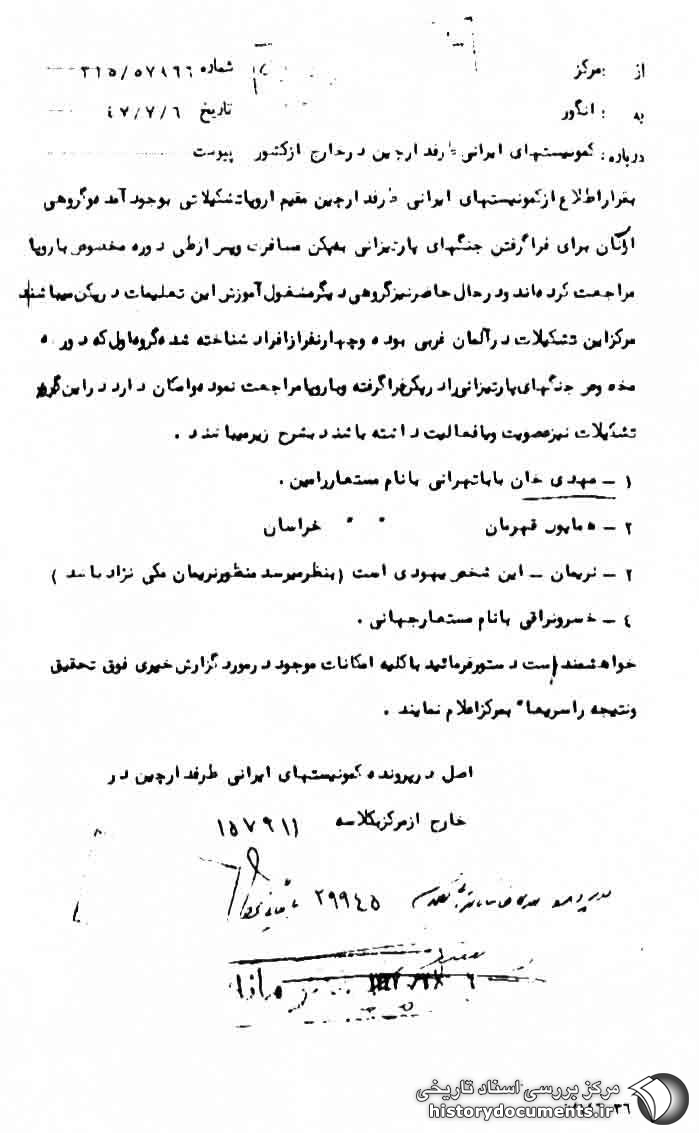 از : مرکز شماره ۳۱۵/۵۷۸۶۶
به : انگور تاریخ ۴۷/۷/۶
درباره : کمونیستهای ایرانی طرفدار چین در خارج از کشور پیوست
بقرار اطلاع از کمونیستهای ایرانی طرفدار چین مقیم اروپا تشکیلاتی بوجود آمده و گروهی
از آنان برای فرا گرفتن جنگهای پارتیزانی به پکن مسافرت و پس از طی دوره مخصوص باروپا
مراجعت کرده‌اند و در حال حاضر نیز گروهی دیگر مشغول آموزش این تعلیمات در پکن میباشند
مرکز این تشکیلات در آلمان غربی بوده و چهار نفر از افراد شناخته شده گروه اول که دوره
مخصوص جنگهای پارتیزانی را در پکن فرا گرفته و باروپا مراجعت نموده و امکان دارد در این گروه
تشکیلات نیز عضویت و یا فعالیت داشته باشند بشرح زیر میباشند .
۱ – مهدی خان باباتهرانی بانام مستعار رامین .
۲ – همایون قهرمان " " خراسان
۳ – نریمان – این شخص یهودی است ( بنظر میرسد منظور نریمان مکی نژاد باشد )
٤ – خسرو نراقی بانام مستعار جهانی .
خواهشمند است دستور فرمائید با کلیه امکانات موجود در مورد گزارش خبری فوق تحقیق
و نتیجه را سریعا" بمرکز اعلام نمایند .
اصل در پرونده کمونیستهای ایرانی طرفدار چین در
خارج از مرکز بکلاسه ۱۵۷۹۱۱
۲۹۹۴۵
مرکز بررسی اسناد تاریخی
historydocuments.ir